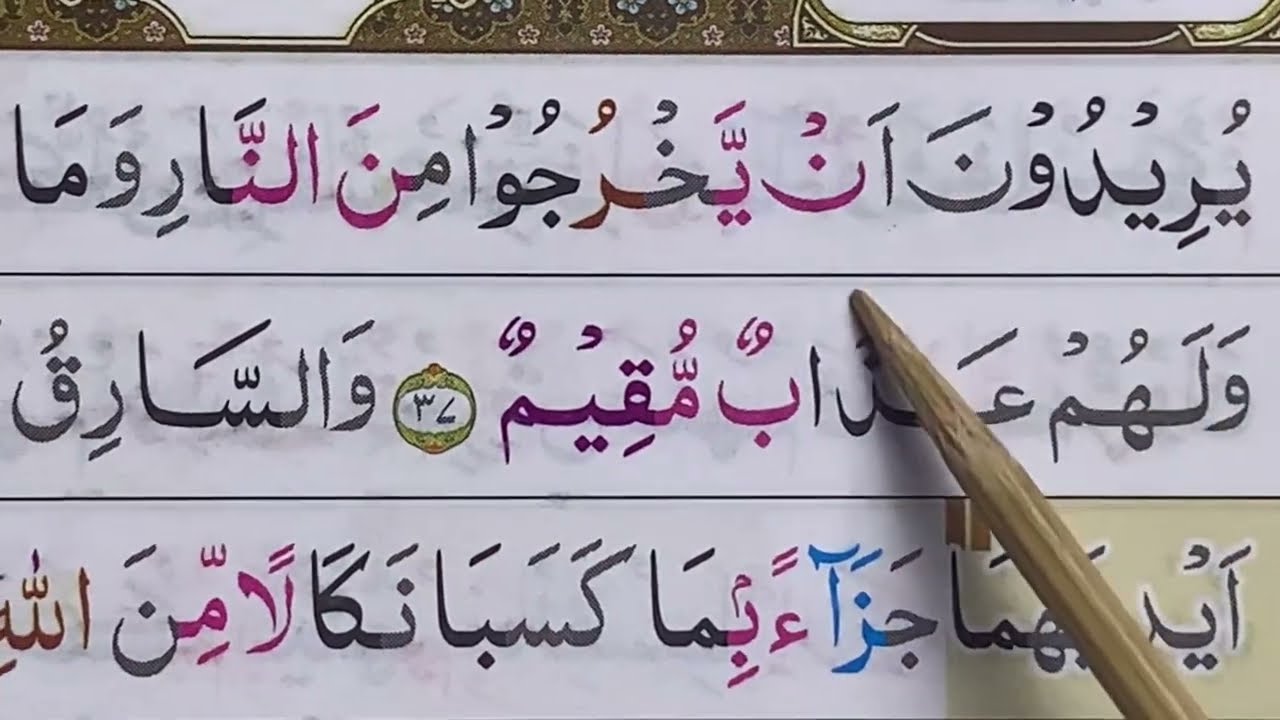 يُرِيْدُوْنَ اَنْ يَّخْرُجُوْا مِنَ النَّارِ وَمَا
وَلَهُمْ عَذَابٌ مُّقِيْمٌ ۝۳۷ وَالسَّارِقُ
اَيْدِيَهُمَا جَزَآءًۢ بِمَا كَسَبَا نَكَالًا مِّنَ اللّٰهِ